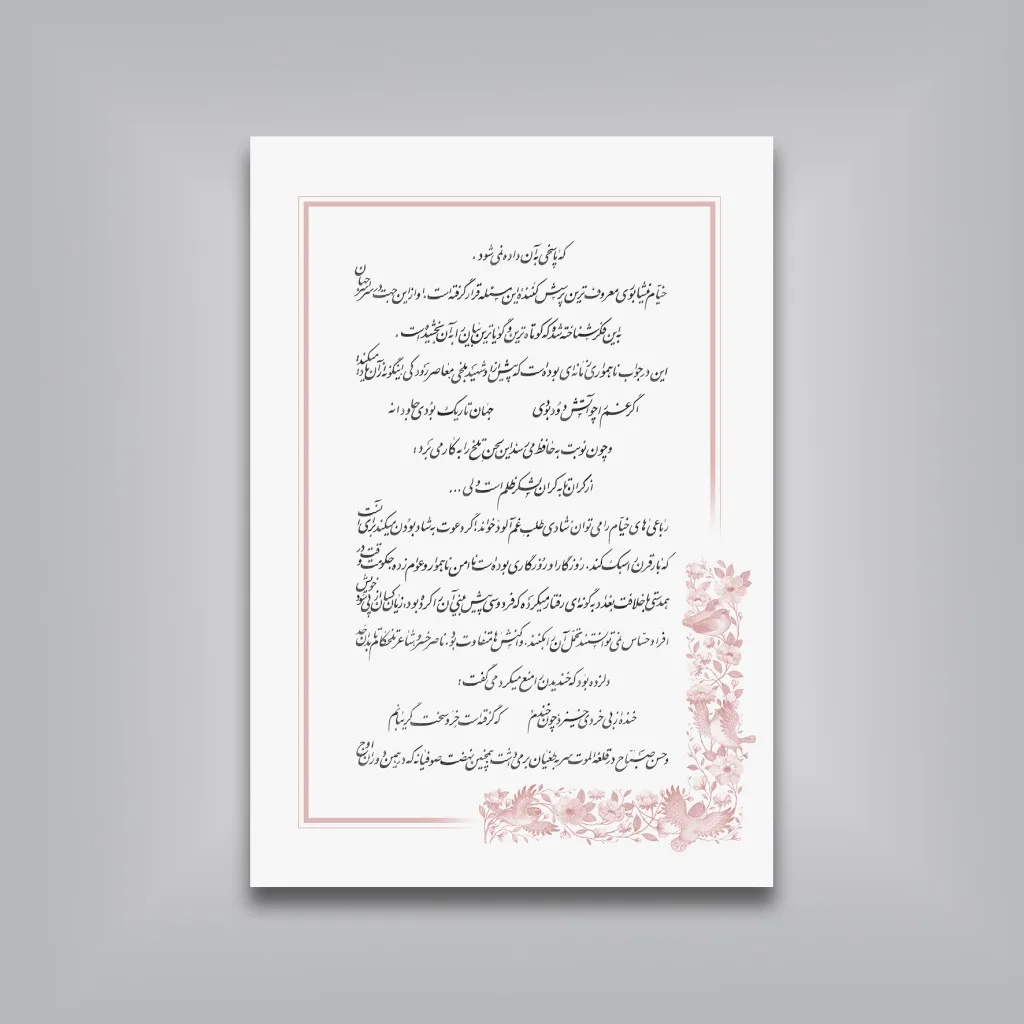 که پاسخی به آن داده نمی‌شود.
خیام نیشابوری معروف‌ترین پرسش کنندهٔ این مسئله قرار گرفته است، و از این جهت در سراسر جهان
به این فکر شناخته شده که کوتاه‌ترین و گویاترین بیان را به آن بخشیده است.
این در جواب ناهمواری زمانه‌ای بوده است که پیش از او شهید بلخی معاصر رودکی اینگونه از آن
اگر غم را چو آتش دود بودی جهان تاریک بودی جاودانه
و چون نوبت به حافظ می‌رسد این سخن تلخ را به کار می‌برد:
از کران تا به کران لشکر ظلم است ولی ...
رباعی‌های خیام را می‌توان شادی طلب غم‌آلود خواند؛ اگر دعوت به شاد بودن میکند برای آنست
که بار قرن را سبک کند، روزگار او روزگاری بوده است ناامن ناهموار و عوام زده، حکومت وقت در
همدستی با خلافت بغداد به گونه‌ای رفتار میکرده که فردوسی پیش بینی آن را کرده بود، زیان کسان از پی سود خویش
افراد حساس نمی‌توانستند تحمل آن را بکنند، واکنش‌ها متفاوت بود، ناصر خسرو شاعر تلخکام تا بدان حد
دلزده بود که خندیدن را منع میکرد می‌گفت:
خنده از بی خردی خیزد چون خندم که گرفته است خرد سخت گریبانم
و حسن صباح در قلعهٔ الموت سر به طغیان برمی‌داشت همچنین نهضت صوفیانه که در همین دوران اوج